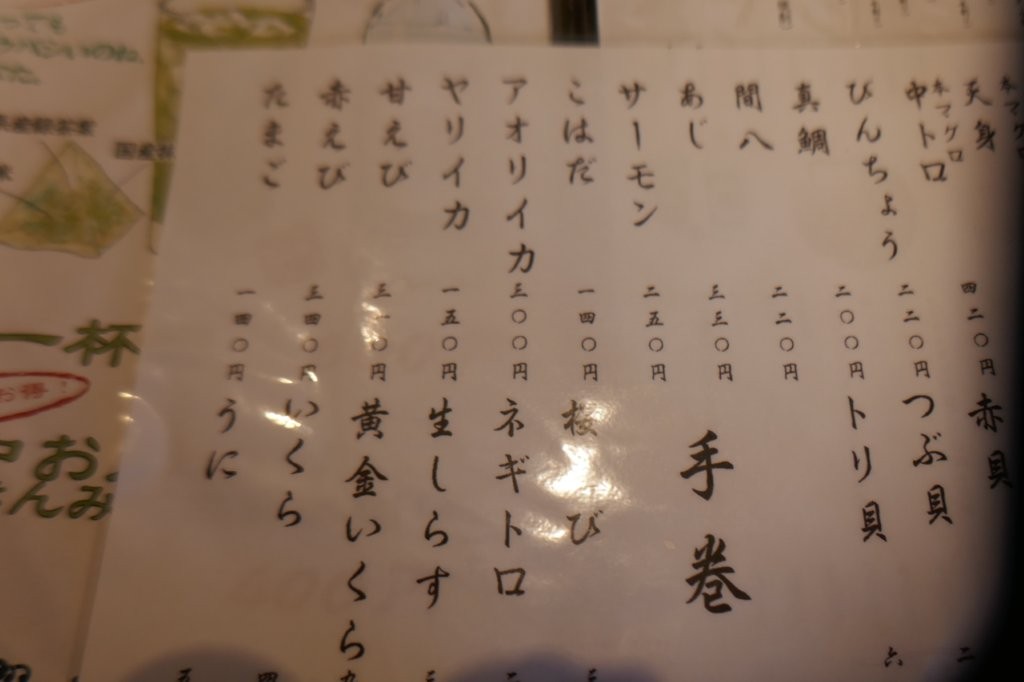 本マグロ
天身
本マグロ
中トロ 四二〇円
びんちょう 二二〇円
真鯛 二〇〇円
間八 二二〇円
あじ 三三〇円
サーモン 二五〇円
こはだ 一四〇円
アオリイカ 三〇〇円
ヤリイカ 一五〇円
甘えび 三一〇円
赤えび 三四〇円
たまご 一四〇円
赤貝
つぶ貝
トリ貝
手巻
桜えび
ネギトロ
生しらす
黄金いくら
いくら
うに
一杯
お得!